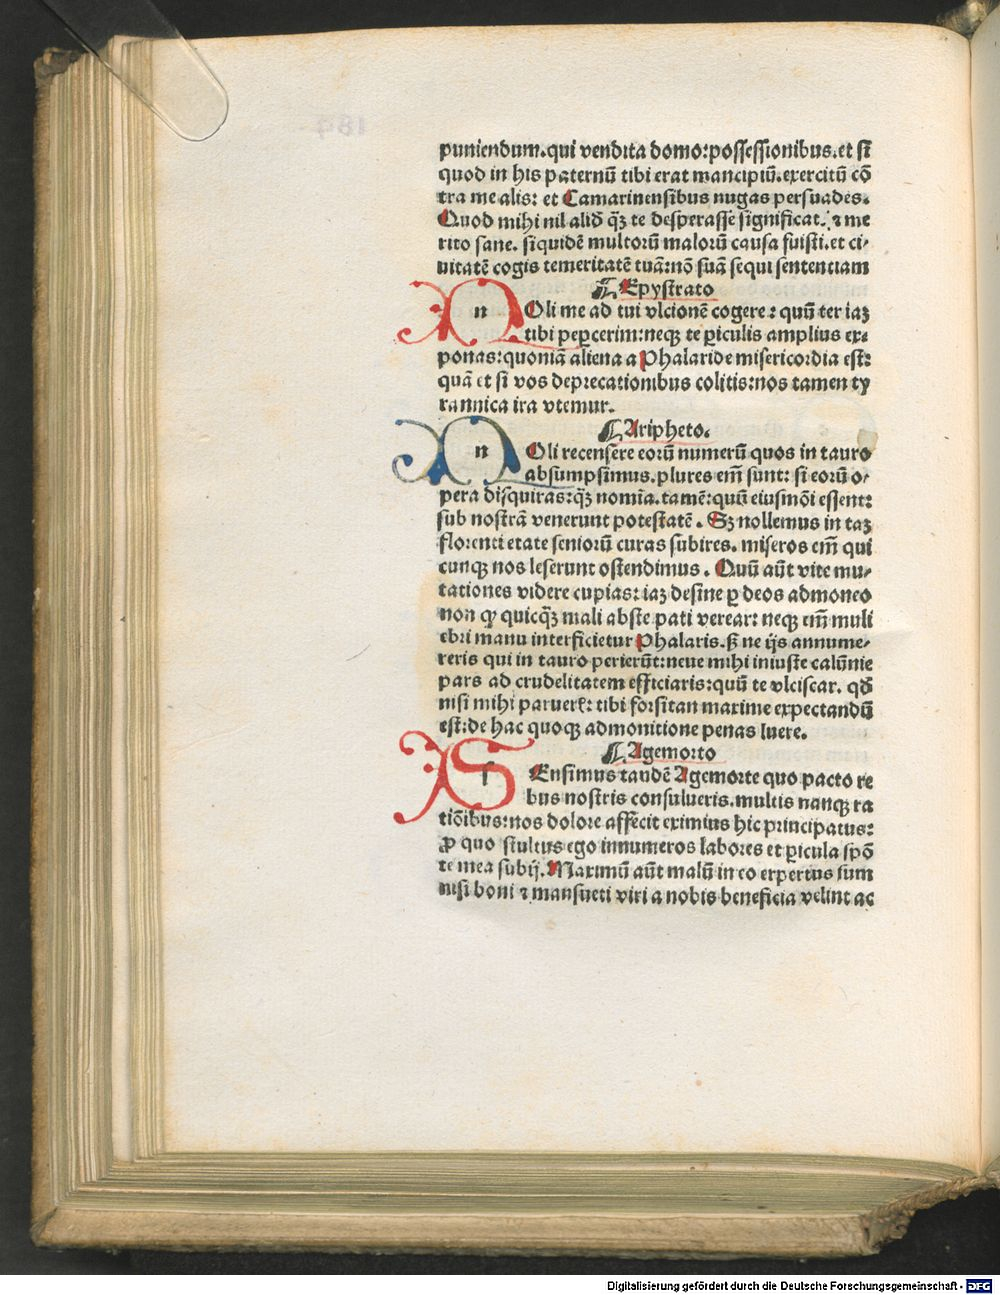 puniendum.qui vendita domo:possessionibus.et si
quod in his paternū tibi erat mancipiū.exercitū cō
tra me alis: et Camarinensibus nugas persuades.
Quod mihi nil aliđ qꝫ te desperasse significat. ⁊ me
rito sane. siquidē multorū malorū causa fuisti.et ci-
uitatē cogis temeritatē tuā:nō suā sequi sententiam
¶ Epystrato
n Oli me ad tui vlcionē cogere: quū ter iaꝫ
tibi peꝑcerim:neqꝫ te ꝑiculis amplius ex-
ponas:quoniā aliena a Phalaride misericordia est:
quā et si vos deprecationibus colitis:nos tamen ty
rannica ira vtemur.
¶ Aripheto.
n Oli recensere eorū numerū quos in tauro
absumpsimus.plures em̄ sunt: si eorū o-
pera disquiras:qꝫ nomīa.tamē:quū eiusmōi essent:
sub nostrā venerunt potestatē. Sꝫ nollemus in taꝫ
florenti etate seniorū curas subires. miseros em̄ qui
cunqꝫ nos leserunt ostendimus. Quū aūt vite mu-
tationes videre cupias:iaꝫ desine ꝑ deos admoneo
non ꝙ quicqꝫ mali abs te pati verear: neqꝫ em̄ muli
ebri manu interficietur Phalaris.sꝫ ne ijs annume-
reris qui in tauro perierūt:neue mihi iniuste calūnie
pars ad crudelitatem efficiaris:quū te vlciscar. qđ
nisi mihi parueris: tibi forsitan maxime expectandū
est:de hac quoqꝫ admonitione penas luere.
¶ Agemorto
s Ensimus tandē Agemorte quo pacto re
bus nostris consulueris.multis nanqꝫ ra
tiōibus:nos dolore affecit eximius hic principatus:
ꝓ quo stultus ego innumeros labores et ꝑicula spō
te mea subij. Maximū aūt malū in eo expertus sum
nisi boni ⁊ mansueti viri a nobis beneficia velint ac
Digitalisierung gefördert durch die Deutsche Forschungsgemeinschaft - DFG